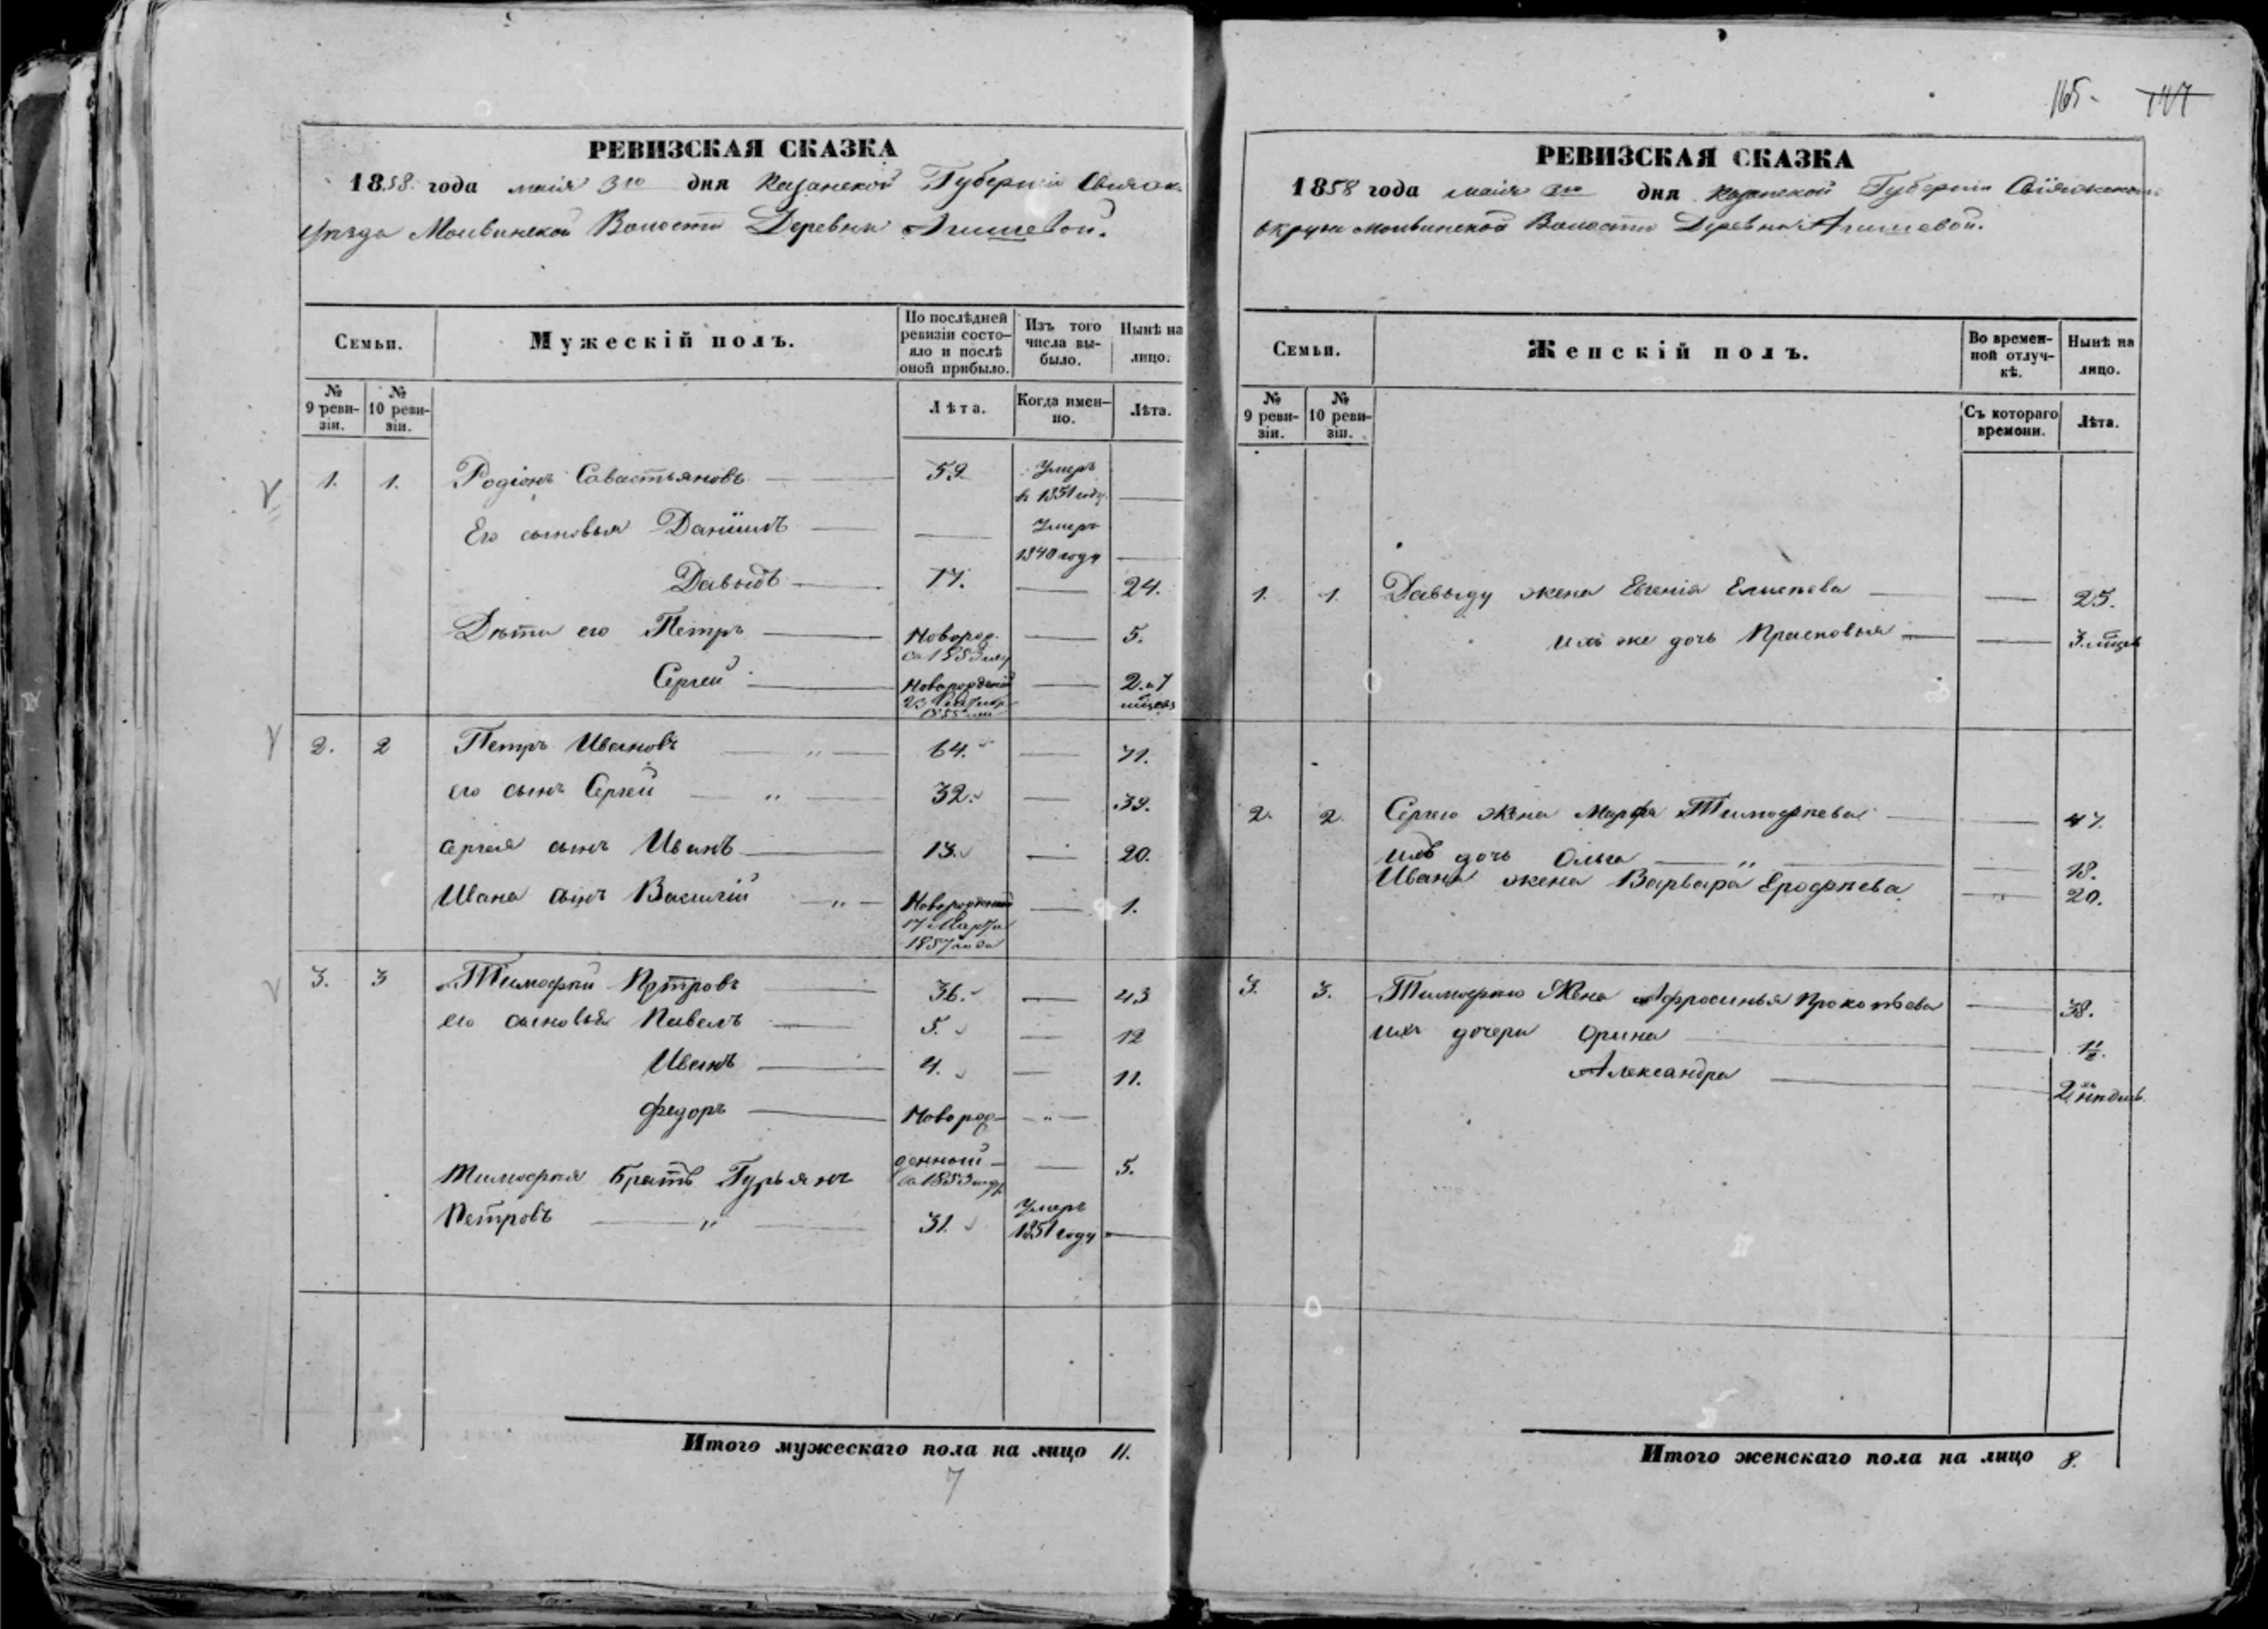 165. 147
РЕВИЗСКАЯ СКАЗКА
1858. года маія 3го дня Казанской Губерніи Свіяж.
уѣзда Молвинской Волости Деревни Агишевой.
Семьи. Мужескій полъ. По послѣдней ревизіи состо-яло и послѣ оной прибыло. Изъ того числа вы-было. Нынѣ на лицо.
№ 9 реви-зіи. № 10 реви-зіи. Лѣта. Когда имен-но. Лѣта.
1. 1. Родіонъ Савастьяновъ 59. Умеръ
в 1851 году.
Его сыновья Даніилъ Умеръ
1840 году
Давыдъ 17. 24.
Дѣти его Петръ Новорож. 5.
въ 1853 году
Сергей Новорожденный 2. и 7 мѣсяцъ
1855
2. 2 Петръ Ивановъ " 64. 71.
его сынъ Сергей " 32. 39.
Сергея сынъ Иванъ 13. 20.
Ивана сынъ Василій " Новорожденный 1.
17 Марта
1857 года
3. 3 Тимофей Петровъ 36. 43
его сыновья Павелъ 5. 12
Иванъ 4. 11.
Федоръ Новорож- "
денный 5.
въ 1853 году
Тимофея братъ Гурьянъ
Петровъ " 31. Умеръ
1851 году
Итого мужескаго пола на лицо 11.
7
РЕВИЗСКАЯ СКАЗКА
1858 года маія 3го дня Казанской Губерніи Свіяжскаго
округа Молвинской Волости Деревни Агишевой.
Семьи. Женскій полъ. Во времен-ной отлуч-кѣ. Нынѣ на лицо.
№ 9 реви-зіи. № 10 реви-зіи. Съ котораго времени. Лѣта.
1. 1. Давыду жена Евгенія Елисеева 25.
ихъ же дочь Прасковья 3. мѣсяц.
2. 2. Сергею жена Марфа Тимофеева 47.
ихъ дочь Ольга " 18.
Ивана жена Варвара Ерофѣева. " 20.
3. 3. Тимофею жена Афросинья Прокопьева 38.
ихъ дочери Орина 11
Александра 2хъ недѣль.
Итого женскаго пола на лицо 8.